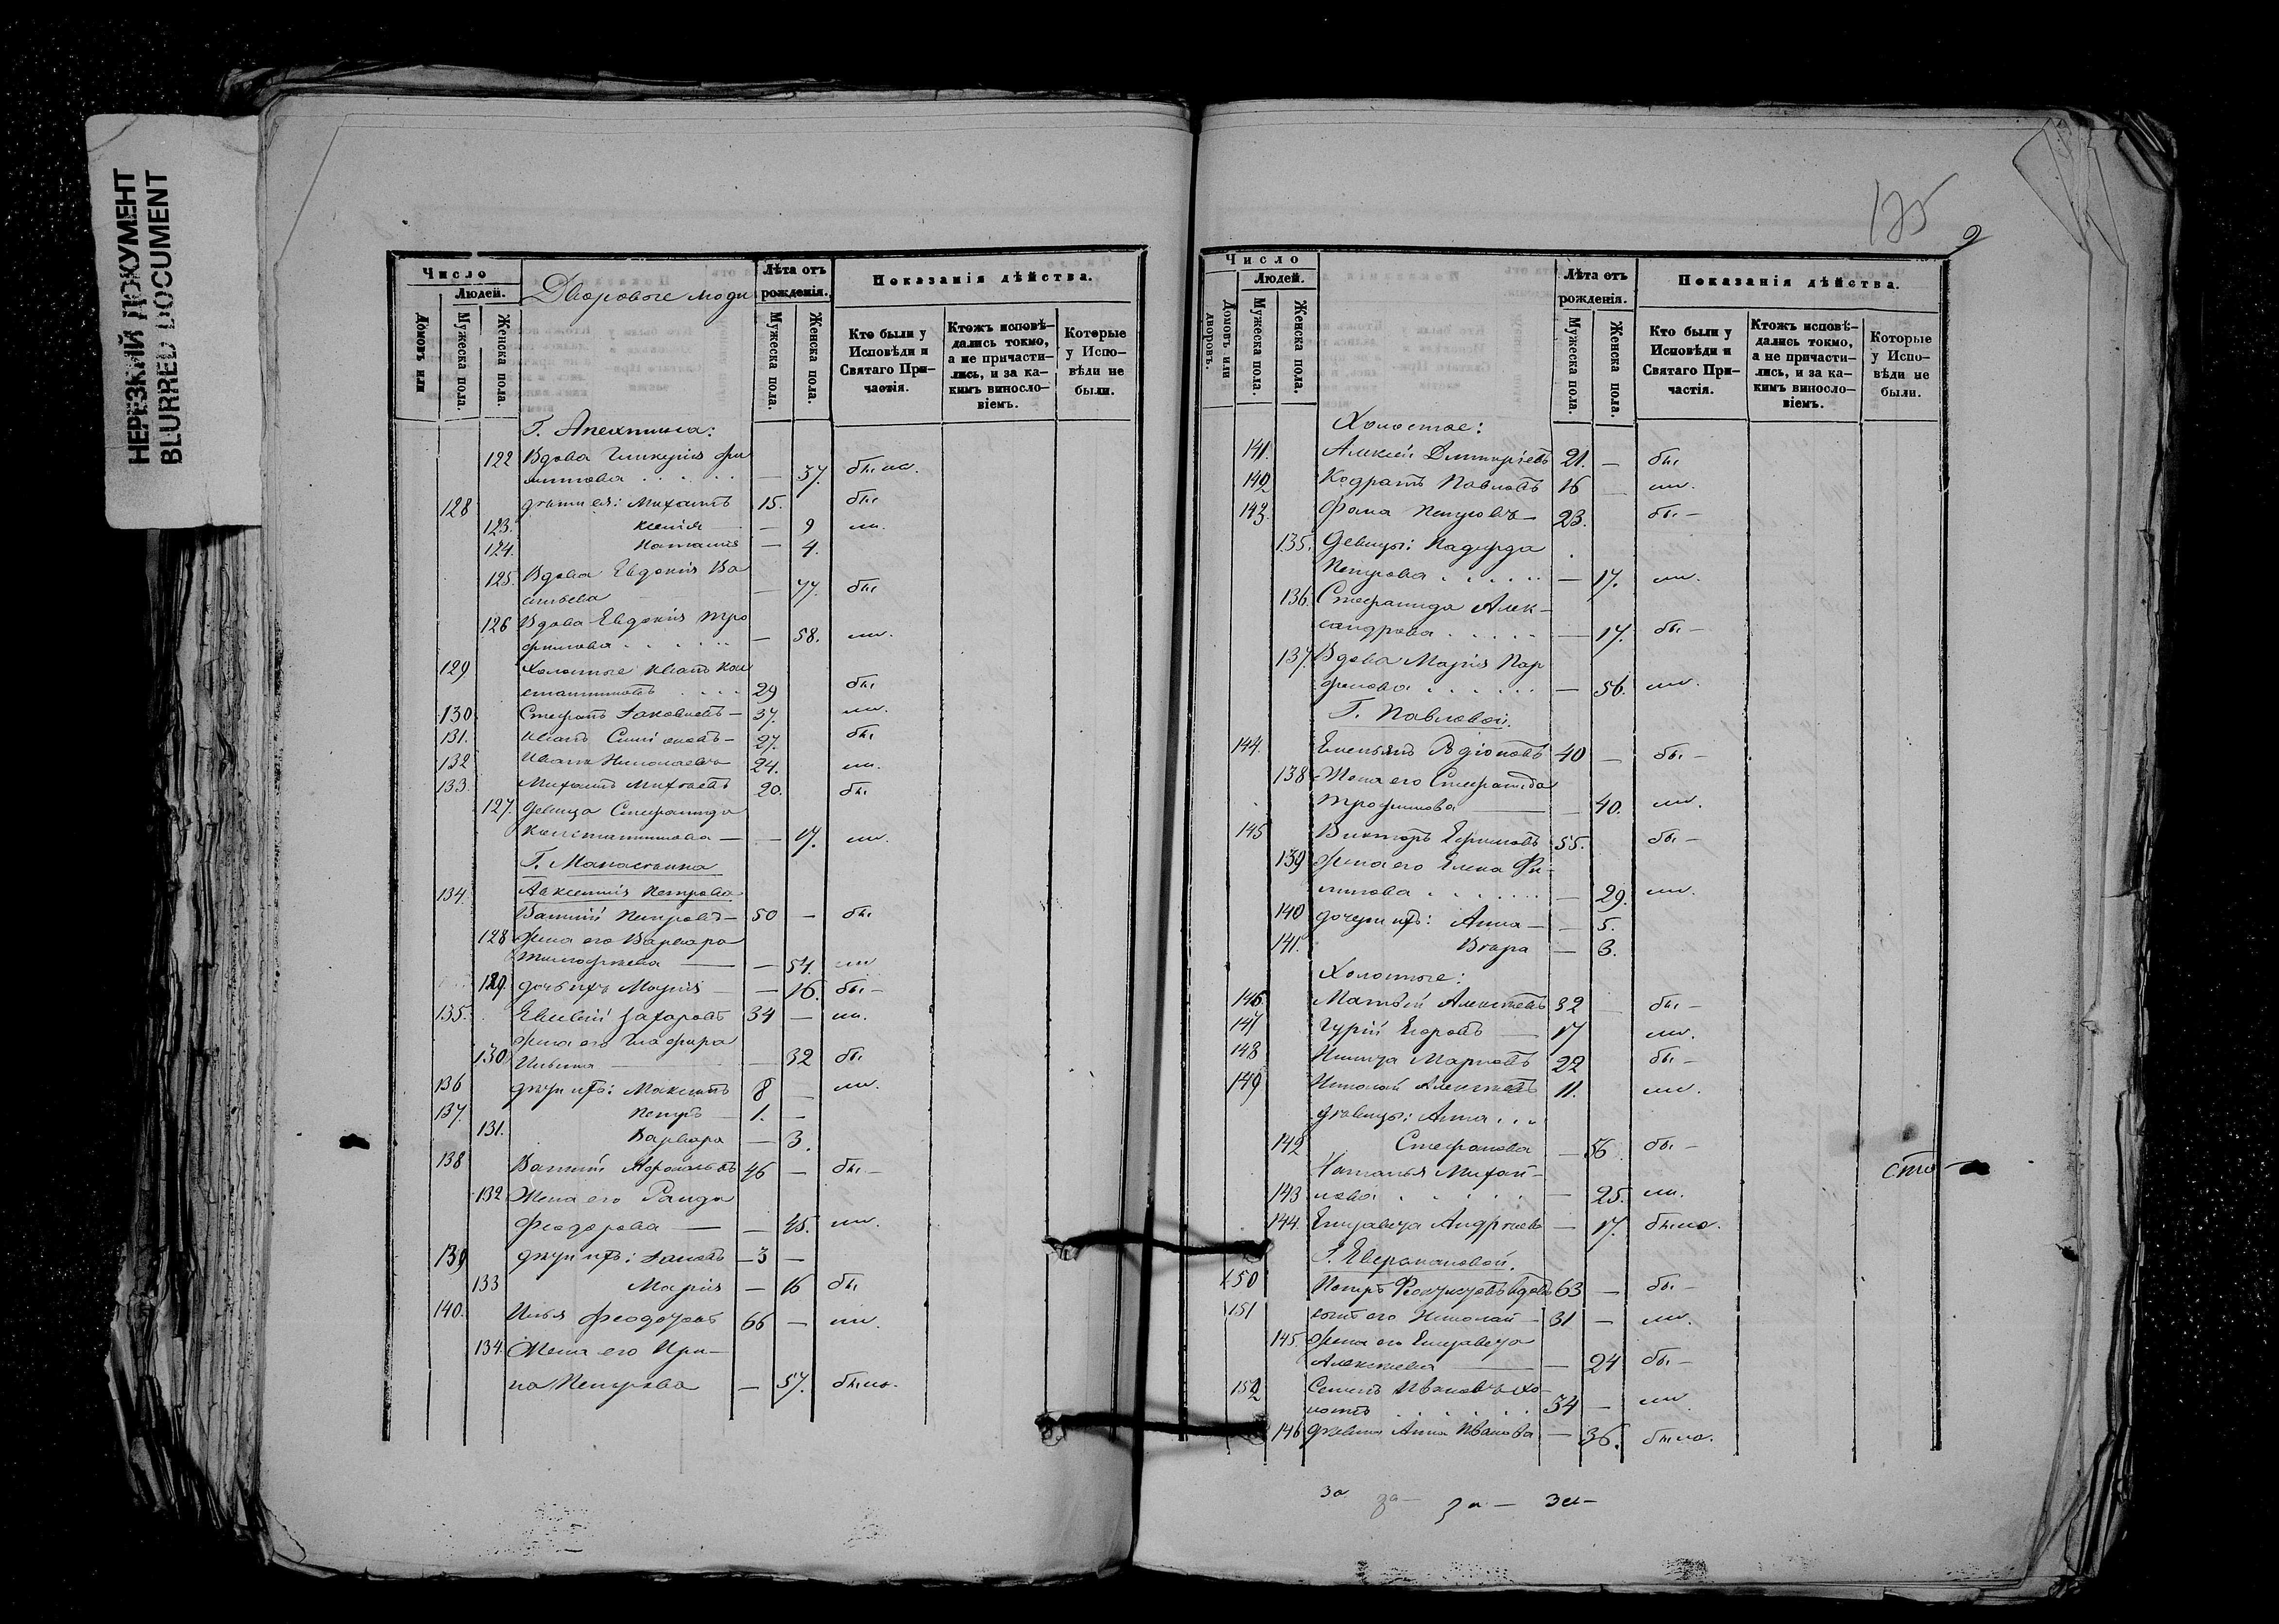 НЕРЕЗКИЙ ДОКУМЕНТ
BLURRED DOCUMENT
Число
Людей.
Домовъ или
Мужеска пола.
Женска пола.
Дворовые люди
Лѣта отъ рожденія.
Мужеска пола.
Женска пола.
Показанія дѣйства.
Кто были у Исповѣди и Святаго При-частія.
Ктожъ исповѣ-дались токмо, а не причасти-лись, и за ка-кимъ винослo-віемъ.
Которые у Испо-вѣди не были.
Г. Апехтина:
122 Вдова Гликерія Фи
липпова — 37. были.
128 дѣти ея: Михаилъ 15. бы
123. Ксенія — 9 ли.
124. Наталія — 4.
125. Вдова Евдокія Ва
сильева — 77. бы
126 Вдова Евдокія Тро
фимова — 58. ли.
129 Холостые Иванъ Кон
стантиновъ 29 бы
130 Стефанъ Іаковлевъ — 37. ли.
131. Иванъ 27. бы
132 Иванъ Николаевъ 24. ли.
133. Михаилъ Михѣевъ 20. бы
127. Девица Стефанида
Константинова — 17. ли.
Г.
134. Авксентія Петрова
Василій Петровъ — 50 — бы
128 Жена его Варвара
Тимофѣева — 54. ли
129. дочь ихъ Марія — 16. бы —
135. Евсевій Захаровъ 34 — ли.
Жена его Глафира
130 Ильина — 32 бы
136 дѣти ихъ: Максимъ 8 — ли.
137. Петръ 1. —
131. Варвара — 3.
138 Василій 46 — бы —
132 Жена его Раида
Феодорова — 45. ли.
139 дѣти ихъ: Іаковъ — 3 —
133 Марія — 16 бы
140. Илья Феодоровъ 66 — ли.
134. Жена его Ири—
на Петрова — 57. было.
125
9
Число
Людей.
Домовъ или дворовъ.
Мужеска пола.
Женска пола.
Лѣта отъ рожденія.
Мужеска пола.
Женска пола.
Показанія дѣйства.
Кто были у Исповѣди и Святаго При-частія.
Ктожъ исповѣ-дались токмо, а не причасти-лись, и за ка-кимъ винослo-віемъ.
Которые у Испо-вѣди не были.
Холостые:
141. Алексѣй Димитріевъ 21. — бы
142 Кодратъ Павловъ 16 — ли.
143. Фома Петровъ — 23. бы —
135. Девицы: Надежда
Петрова — 17. ли.
136. Стефанида Алек—
сандрова — 17. бы —
137. Вдова Марія Пар
фенова — 56. ли.
Г. Павловой.
144. Емельянъ Родіоновъ 40 — бы —
138 Жена его Стефанида
Трофимова — 40. ли.
145 Викторъ Ефимовъ 55. бы —
139 Жена его Елена Фи—
липпова — 29. ли.
140 дочери ихъ: Анна — — 5.
141. Вѣра — 3.
Холостые:
146. Матвѣй Алексѣевъ 32 бы —
147 Гурій Егоровъ — 17 ли.
148 Никита Марковъ 22 бы —
149 Николай Алексѣевъ 11. ли.
Девицы: Анна
142 Стефанова — 56 бы —
Наталья Михай—
143 лова — 25. ли.
144. Елизавета Андрѣева — 17. было.
Г.
150 Петръ вдовъ 63 — бы —
151 сынъ его Николай — 31 — ли.
145. Жена его Елизавета
Алексѣева — 24 бы —
152 Семенъ Ивановъ хо—
лостъ 34 — ли.
146 Девица Анна Иванова — 36. было.
сто
за за — за — за —